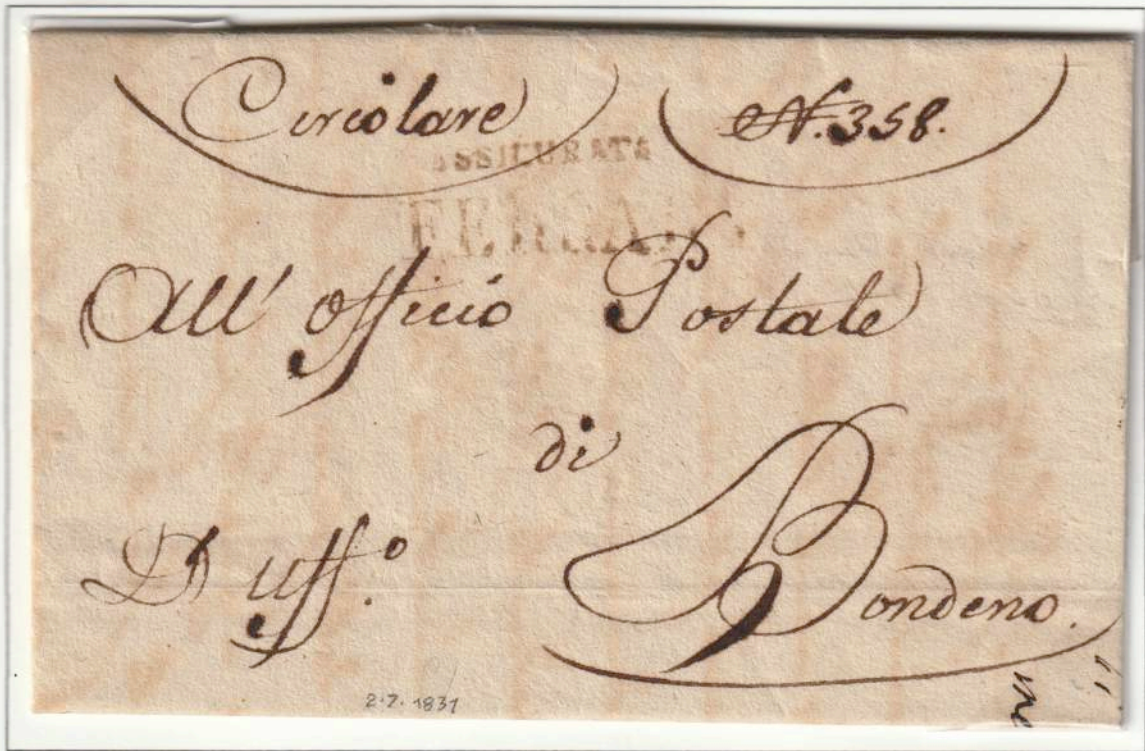 Circolare N. 358.
ASSICURATA
FERRARA
All' Officio Postale
di
D' Uff.º Bondeno.
2.7.1831